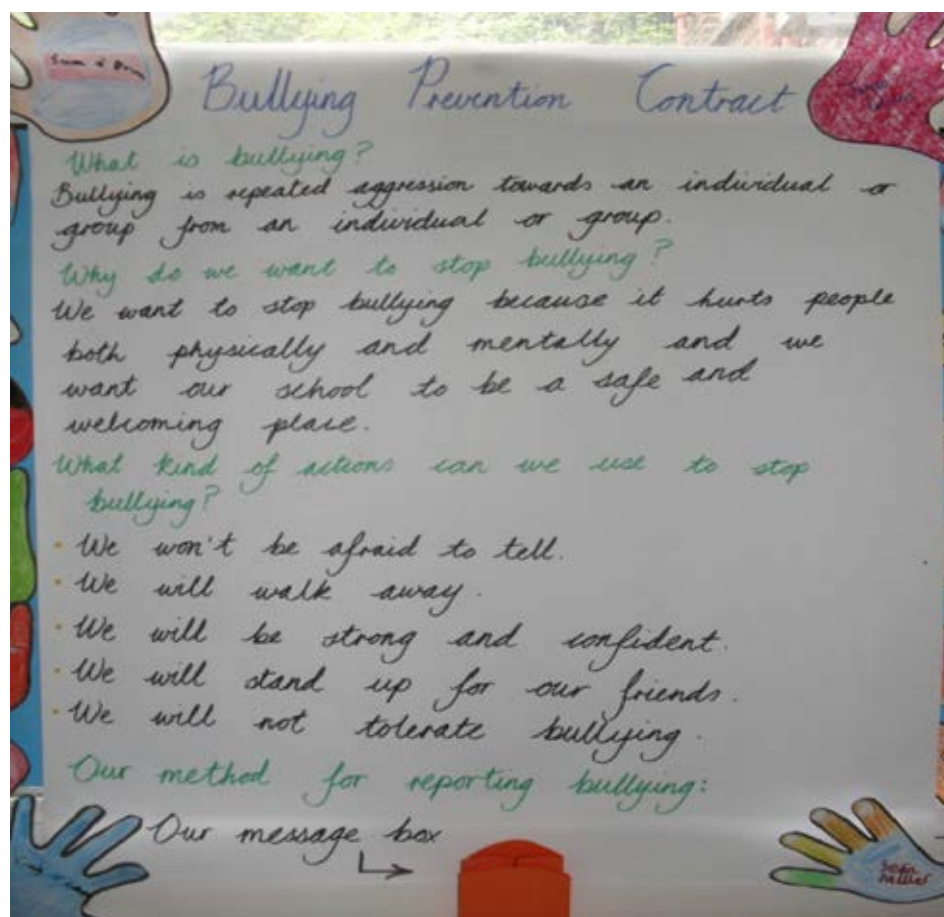 Bullying Prevention Contract
What is bullying?
Bullying is repeated aggression towards an individual or
group from an individual or group.
Why do we want to stop bullying?
We want to stop bullying because it hurts people
both physically and mentally and we
want our school to be a safe and
welcoming place.
What kind of actions can we use to stop
bullying?
· We won't be afraid to tell.
· We will walk away.
· We will be strong and confident.
· We will stand up for our friends.
· We will not tolerate bullying.
Our method for reporting bullying:
Our message box